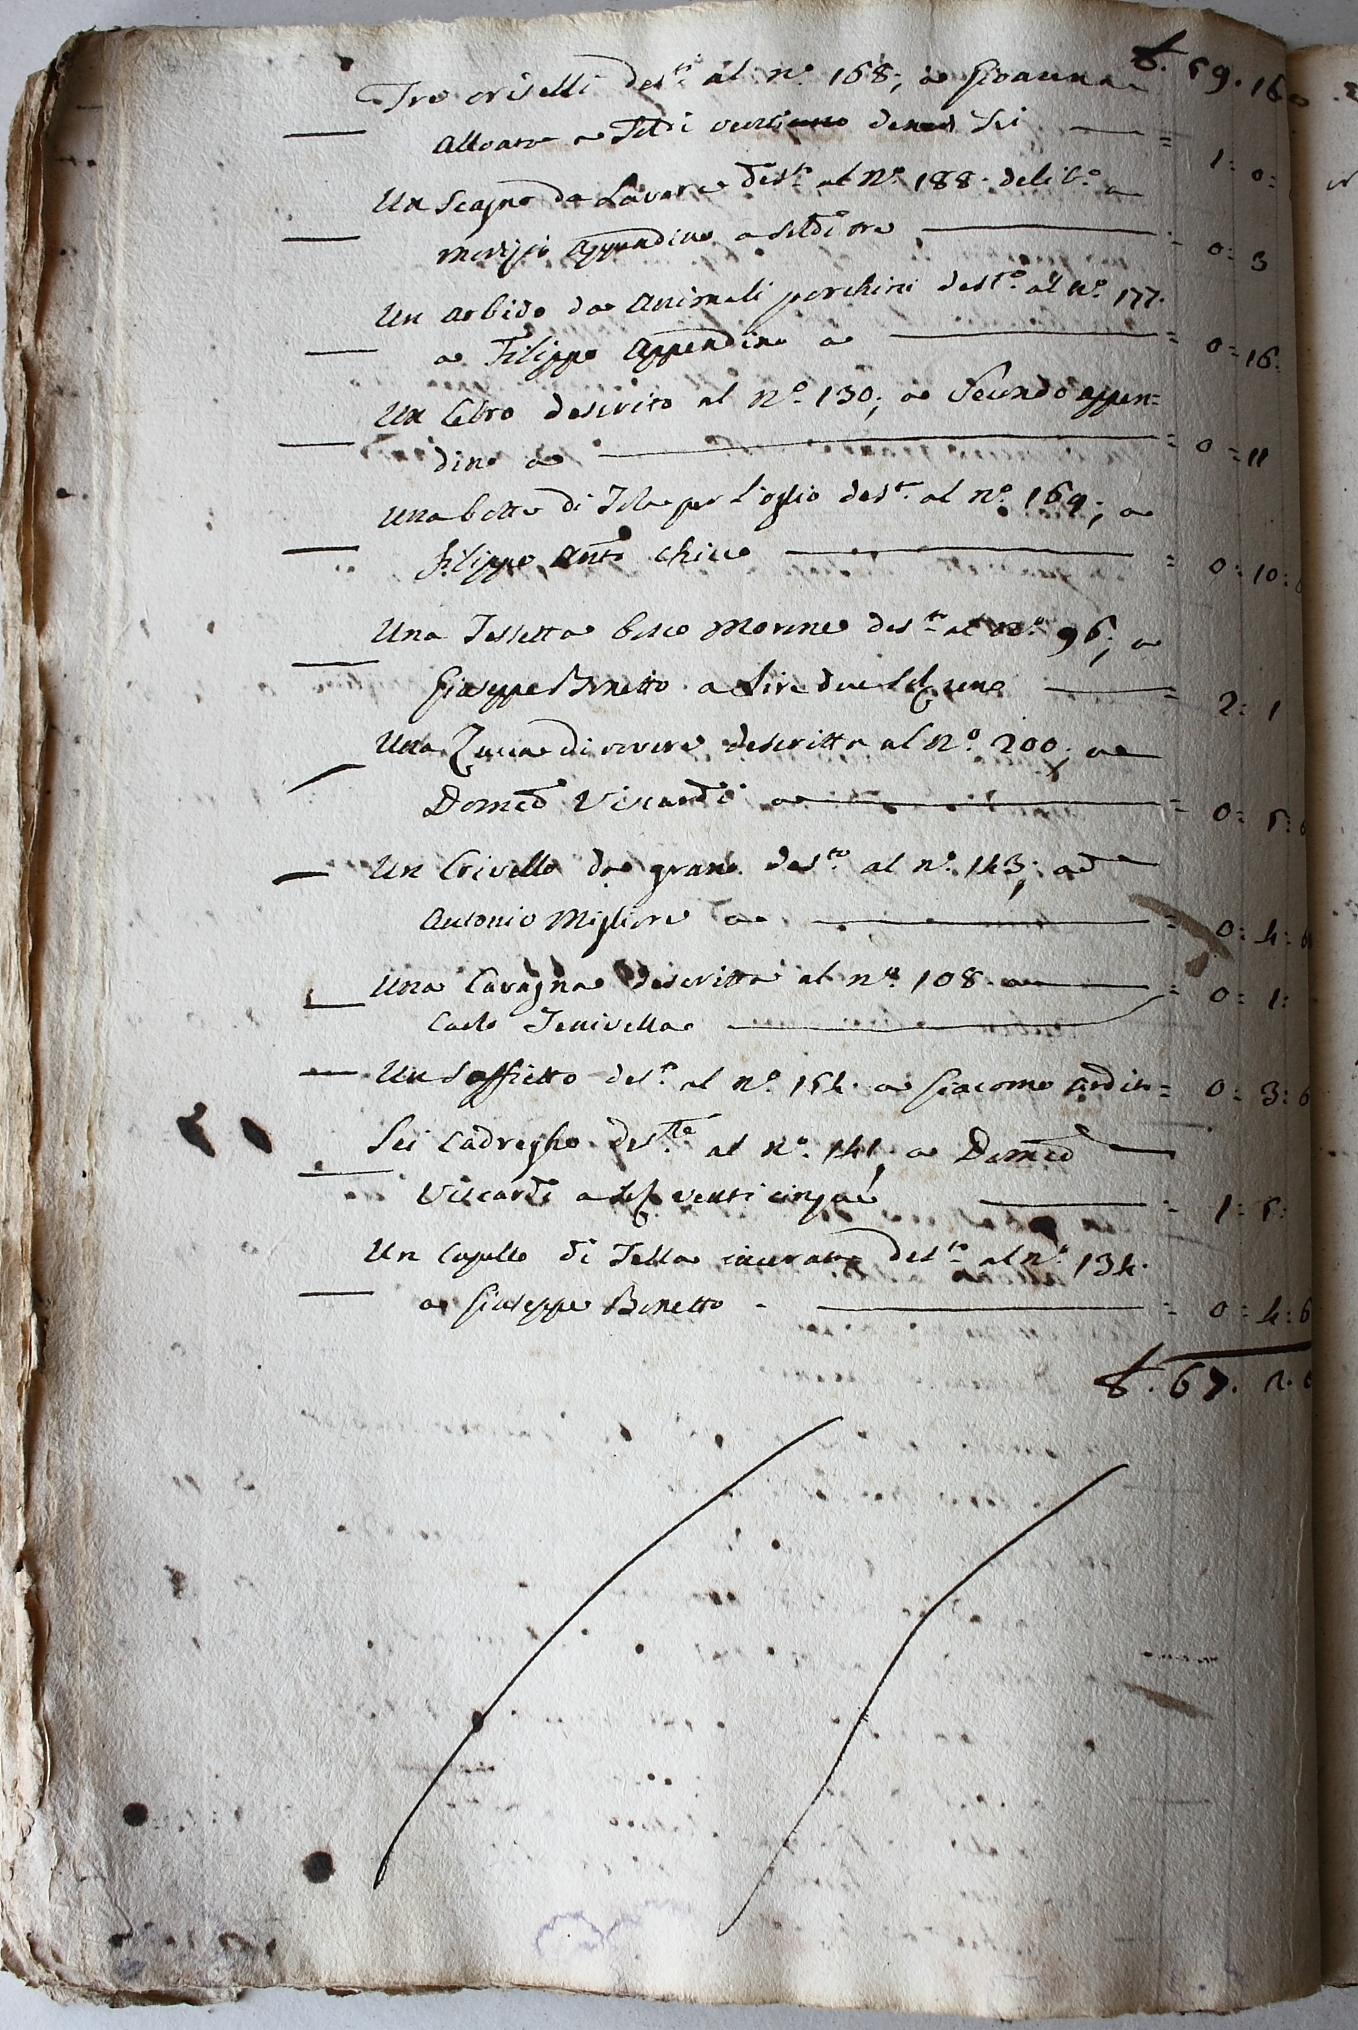 ₤. 59. 16
Tre crivelli des.ti al n.° 168; a Giovanna
Alloato a Soldi denari sei = 1: 0:
Un Scagno da Lavare des.to al N.° 188. del
Appendino a soldi tre = 0: 3
Un arbido da Animali porchini des.to al N.° 177.
a Filippo Appendino a = 0=16:
Un Cebro descrito al N.° 130; a Secondo appen=
dino a = 0=11
Una botte di Tola per l'oglio des.ta al n.° 169; a
Filippo Ant.o Chicco = 0: 10:
Una bosco Morone des.ta al N.° 96; a
Giuseppe Bonetto a Lire due una = 2: 1
Una Zucca di rovere descritta al N.° 200; a
Domco Viscardi a = 0: 5: 6
Un Crivello da grano des.to al n.° 143; ad
Antonio Migliore a = 0: 4: 6
Una Cavagna descritta al n.° 108. a = 0: 1:
Carlo Tenivella
Un Soffietto des.to al n.° 154. a Giacomo Ardit = 0: 3: 6
Sei Cadreghe des.tte al N.° 141, a Domco
Viscardi a venti cinque = 1: 5:
Un Capello di Tella incerata des.to al n.° 134.
a Giuseppe Bonetto - = 0 = 4: 6
₤. 67. 2. 6